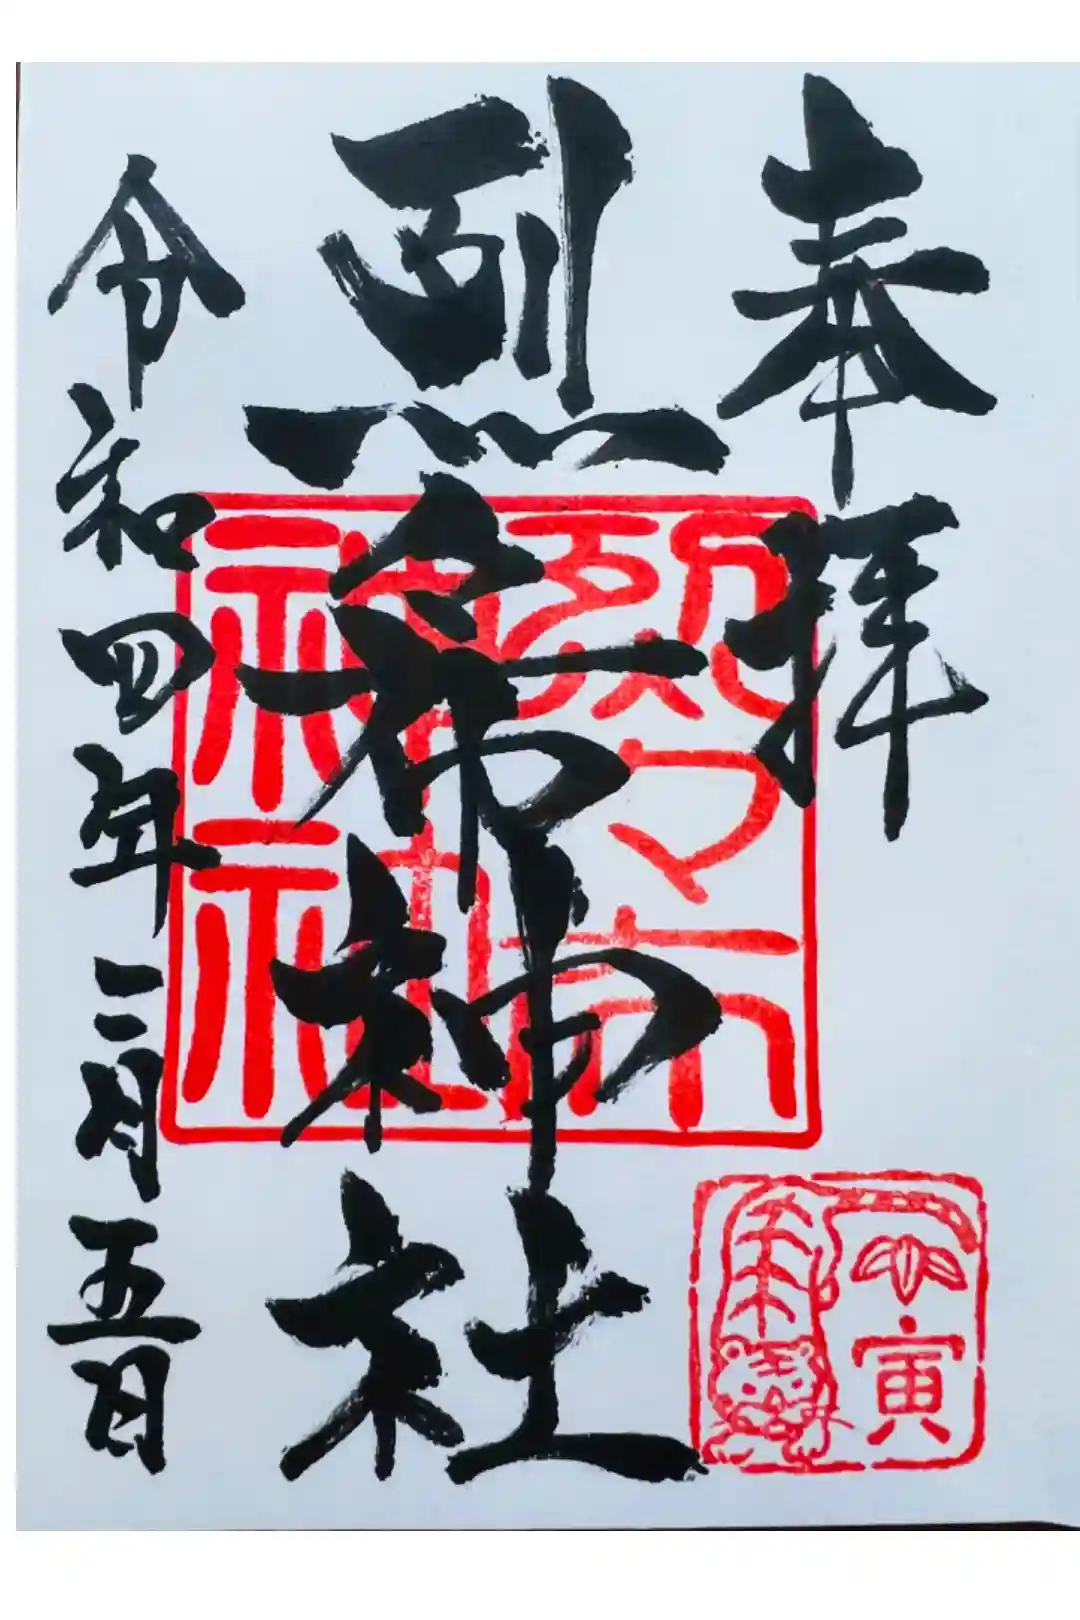 奉拝
烈々布神社
烈々布
神社
寅
令和四年二月五日